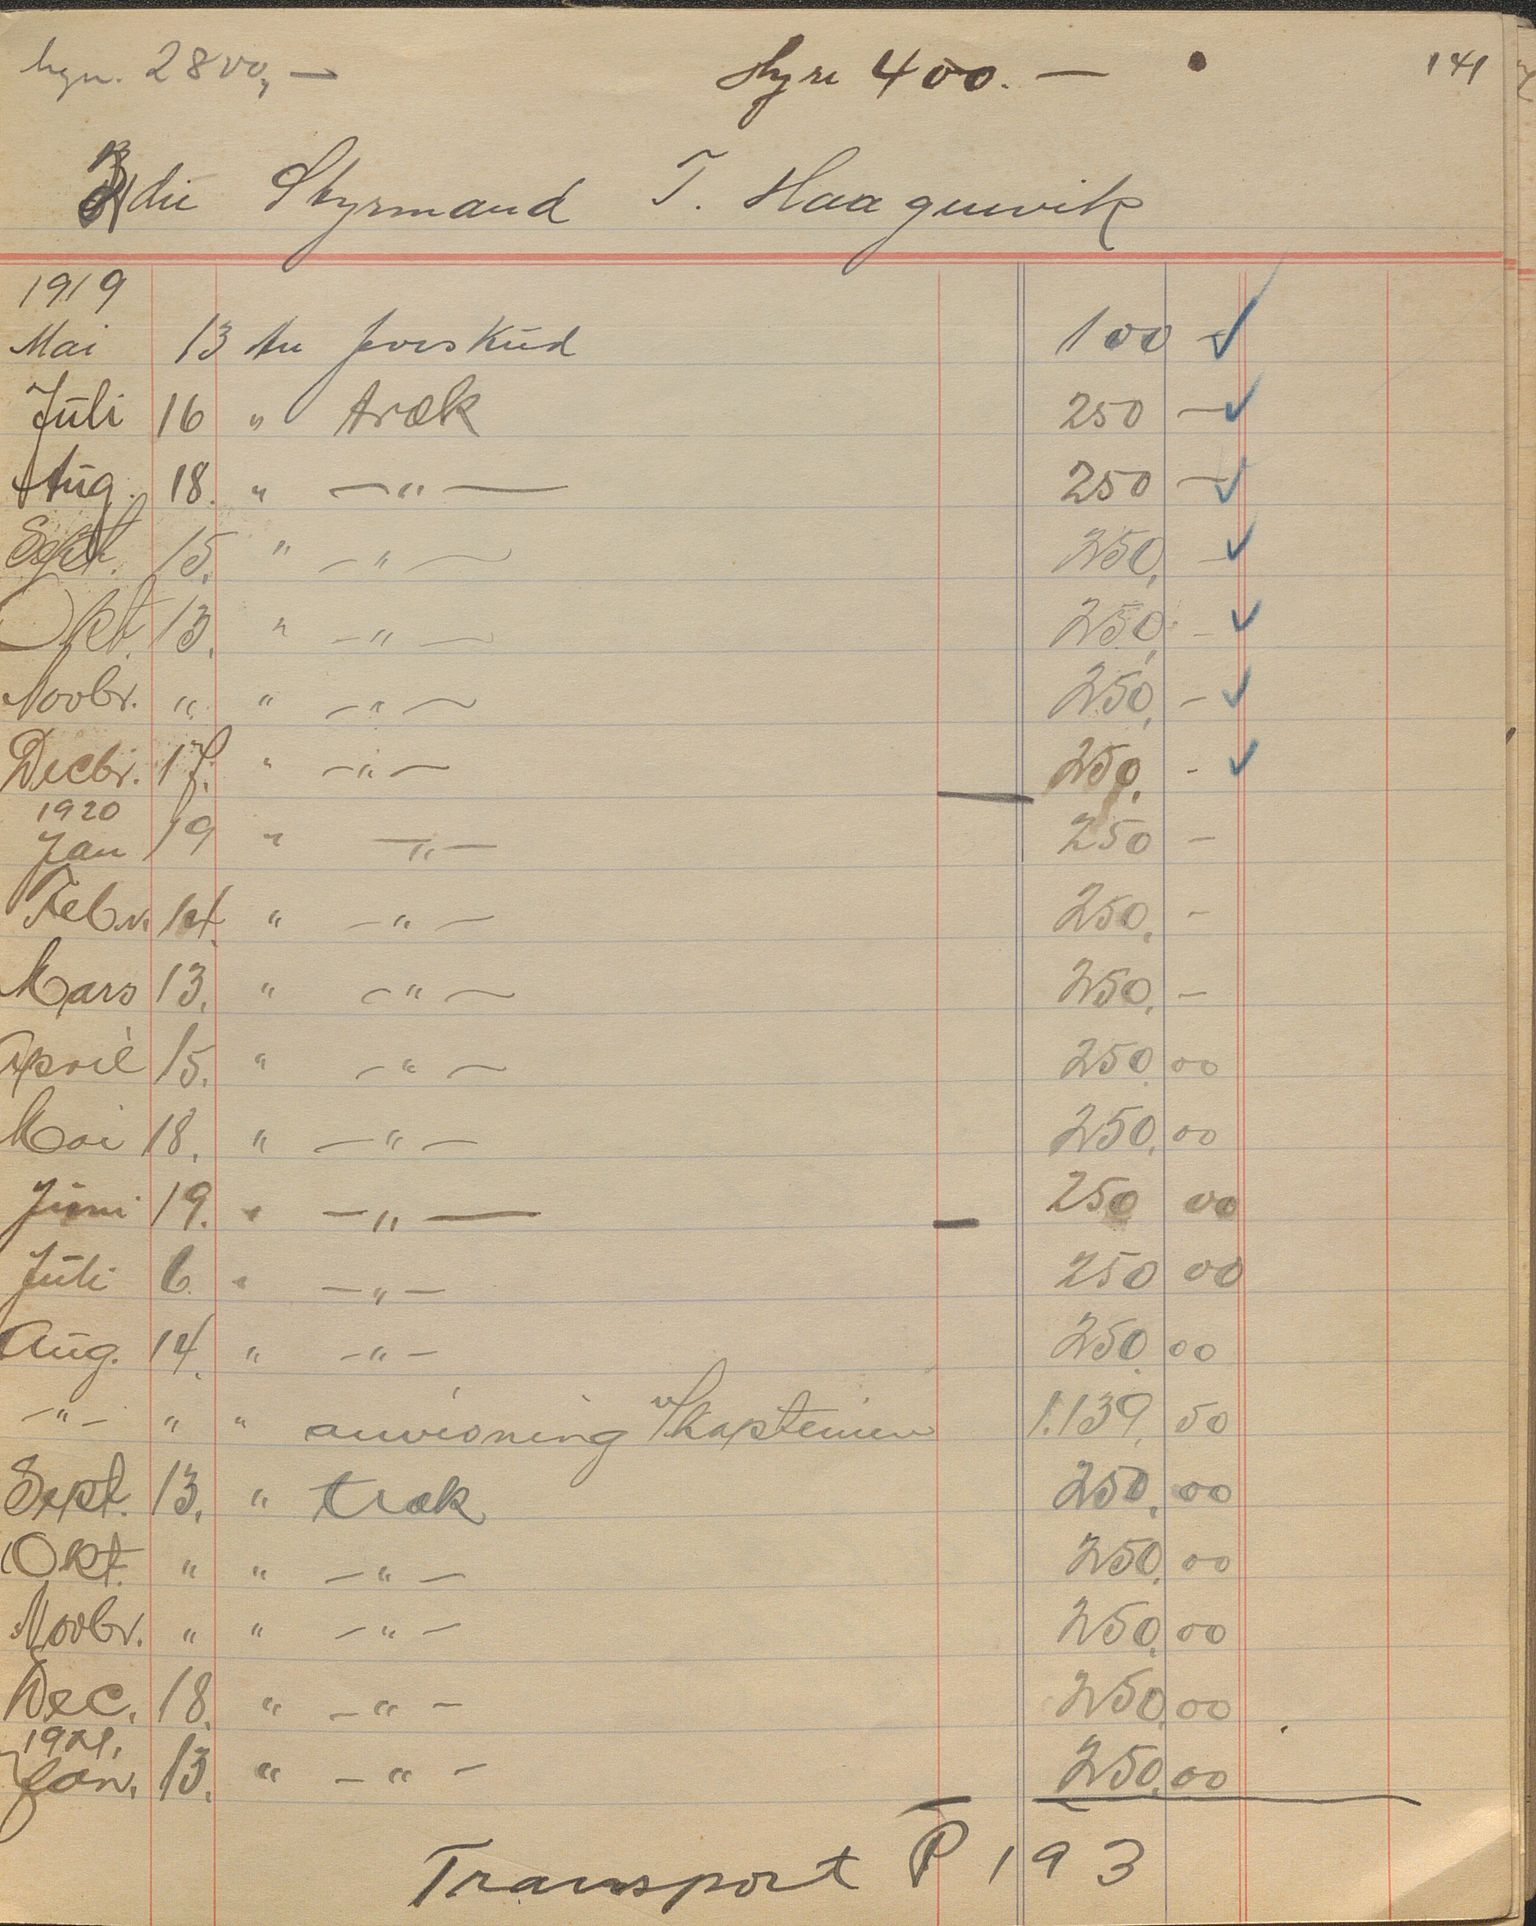 2800, — Hyre 400. — 141
3die Styrmand T. Haaguevik
1919
Mai 13 An forskud 100 —
Juli 16 " træk 250 —
Aug. 18. " —"— 250 —
Sept. 15. " —"— 250, —
Okt. 13. " —"— 250, —
Novbr. " " —"— 250, —
Decbr. 17. " —"— 250, —
1920
Jan 19 " —"— 250 —
Febr. 14. " —"— 250, —
Mars 13. " —"— 250, —
April 15. " —"— 250,00
Mai 18. " —"— 250,00
Juni 19. " —"— 250 00
Juli 6 " —"— 250 00
Aug. 14. " —"— 250,00
—"— " " anvisning v/ kapteinen 1.139,50
Sept. 13. " træk 250,00
Okt. " " —"— 250,00
Novbr. " " —"— 250,00
Dec. 18. " —"— 250,00
1921.
Jan. 13. " —"— 250,00
Transport P 193